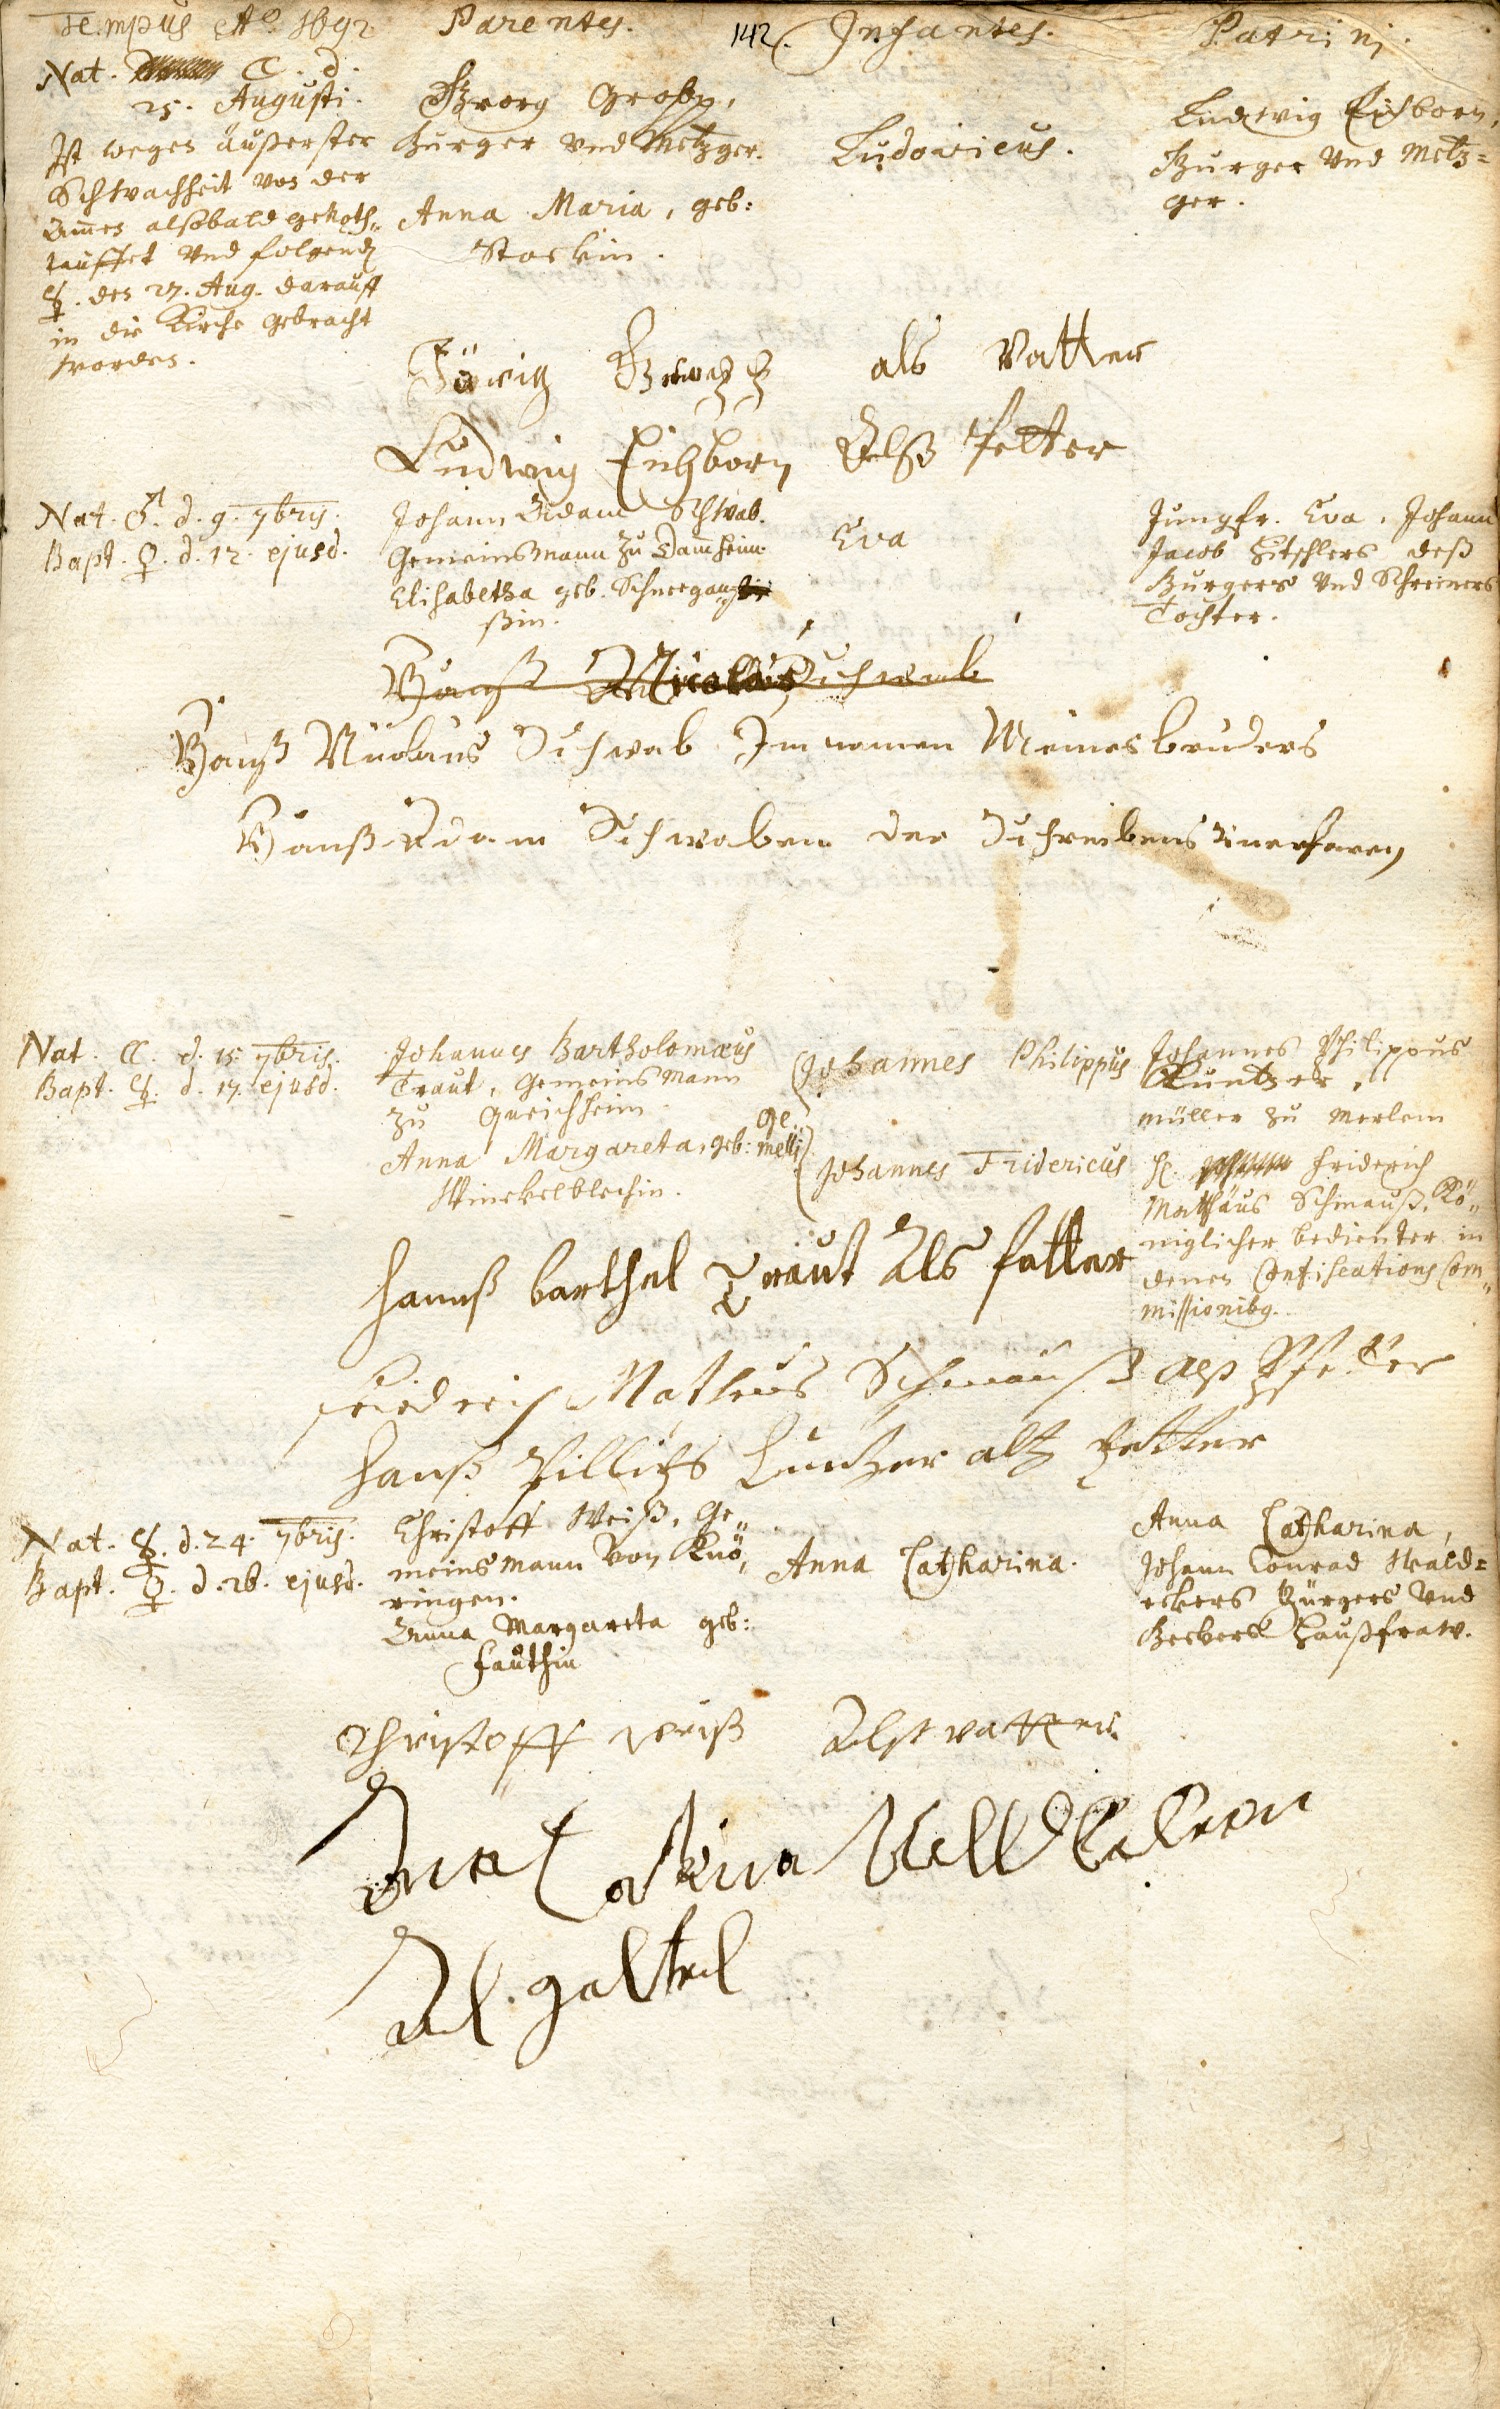 Tempus Aō. 1692
Parentes.
142.
Infantes.
Patrini.
Nat. ☾. d.
25. Augusti.
Ist wegen äußerster
Schwachheit von der
Ammen alsobald genoth-
tauffet vnd folgends
☿. den 27. Aug. darauff
in die Kirche gebracht
worden.
Georg Groß,
Burger vnd Metzger.
Anna Maria, geb:
Stockin.
Ludovicus.
Ludwig Eichborn,
Burger vnd Metz=
ger.
als Vatter
Ludwig Eichborn Alß Petter
Nat. ♂. d. 9. 7bris.
Bapt. ♀. d. 12. ejusd.
Johann Adam Schwab.
Gemeinsmann zu Dammheim.
Elisabetha geb. Schneegan-
ßin.
Eva
Jungfr. Eva, Johann
Jacob Hitschlers deß
Burgers vnd Schreiners
Tochter.
Hanß Nicolaus Schwab
Hanß Nicklaus Schwab Im namen Meines bruders
Hanß Adam Schwaben der Schreibens vnerfaren
Nat. ☾. d. 15. 7bris.
Bapt. ☿. d. 17. ejusd.
Johannes Bartholomæus
Traut, Gemeinsmann
zu Queichheim.
Anna Margareta, geb:
Winckelblechin.
Ge-
melli
Johannes Philippus
Johannes Fridericus
Johannes Philippus
Kuntzer,
Müller zu Merlem
H. Friderich
Mathäus Schmauß, Kö-
niglicher bedienter in
denen Confiscations Com-
missionibq.
Hannß barthel Traut Als fatter
Friederich Matheus Schmauß alß Pfetter
Hanß Fillibs Kuntzer alß petter
Nat. ☿. d. 24. 7bris.
Bapt. ♀. d. 26. ejusd.
Christoff Weiß, Ge-
meinsmann von Knö-
ringen.
Anna Margareta geb:
Fauthin
Anna Catharina.
Anna Catharina,
Johann Conrad Wald=
eckers Burgers vnd
Beckers Haußfraw.
Christoff weiß Alß vatter